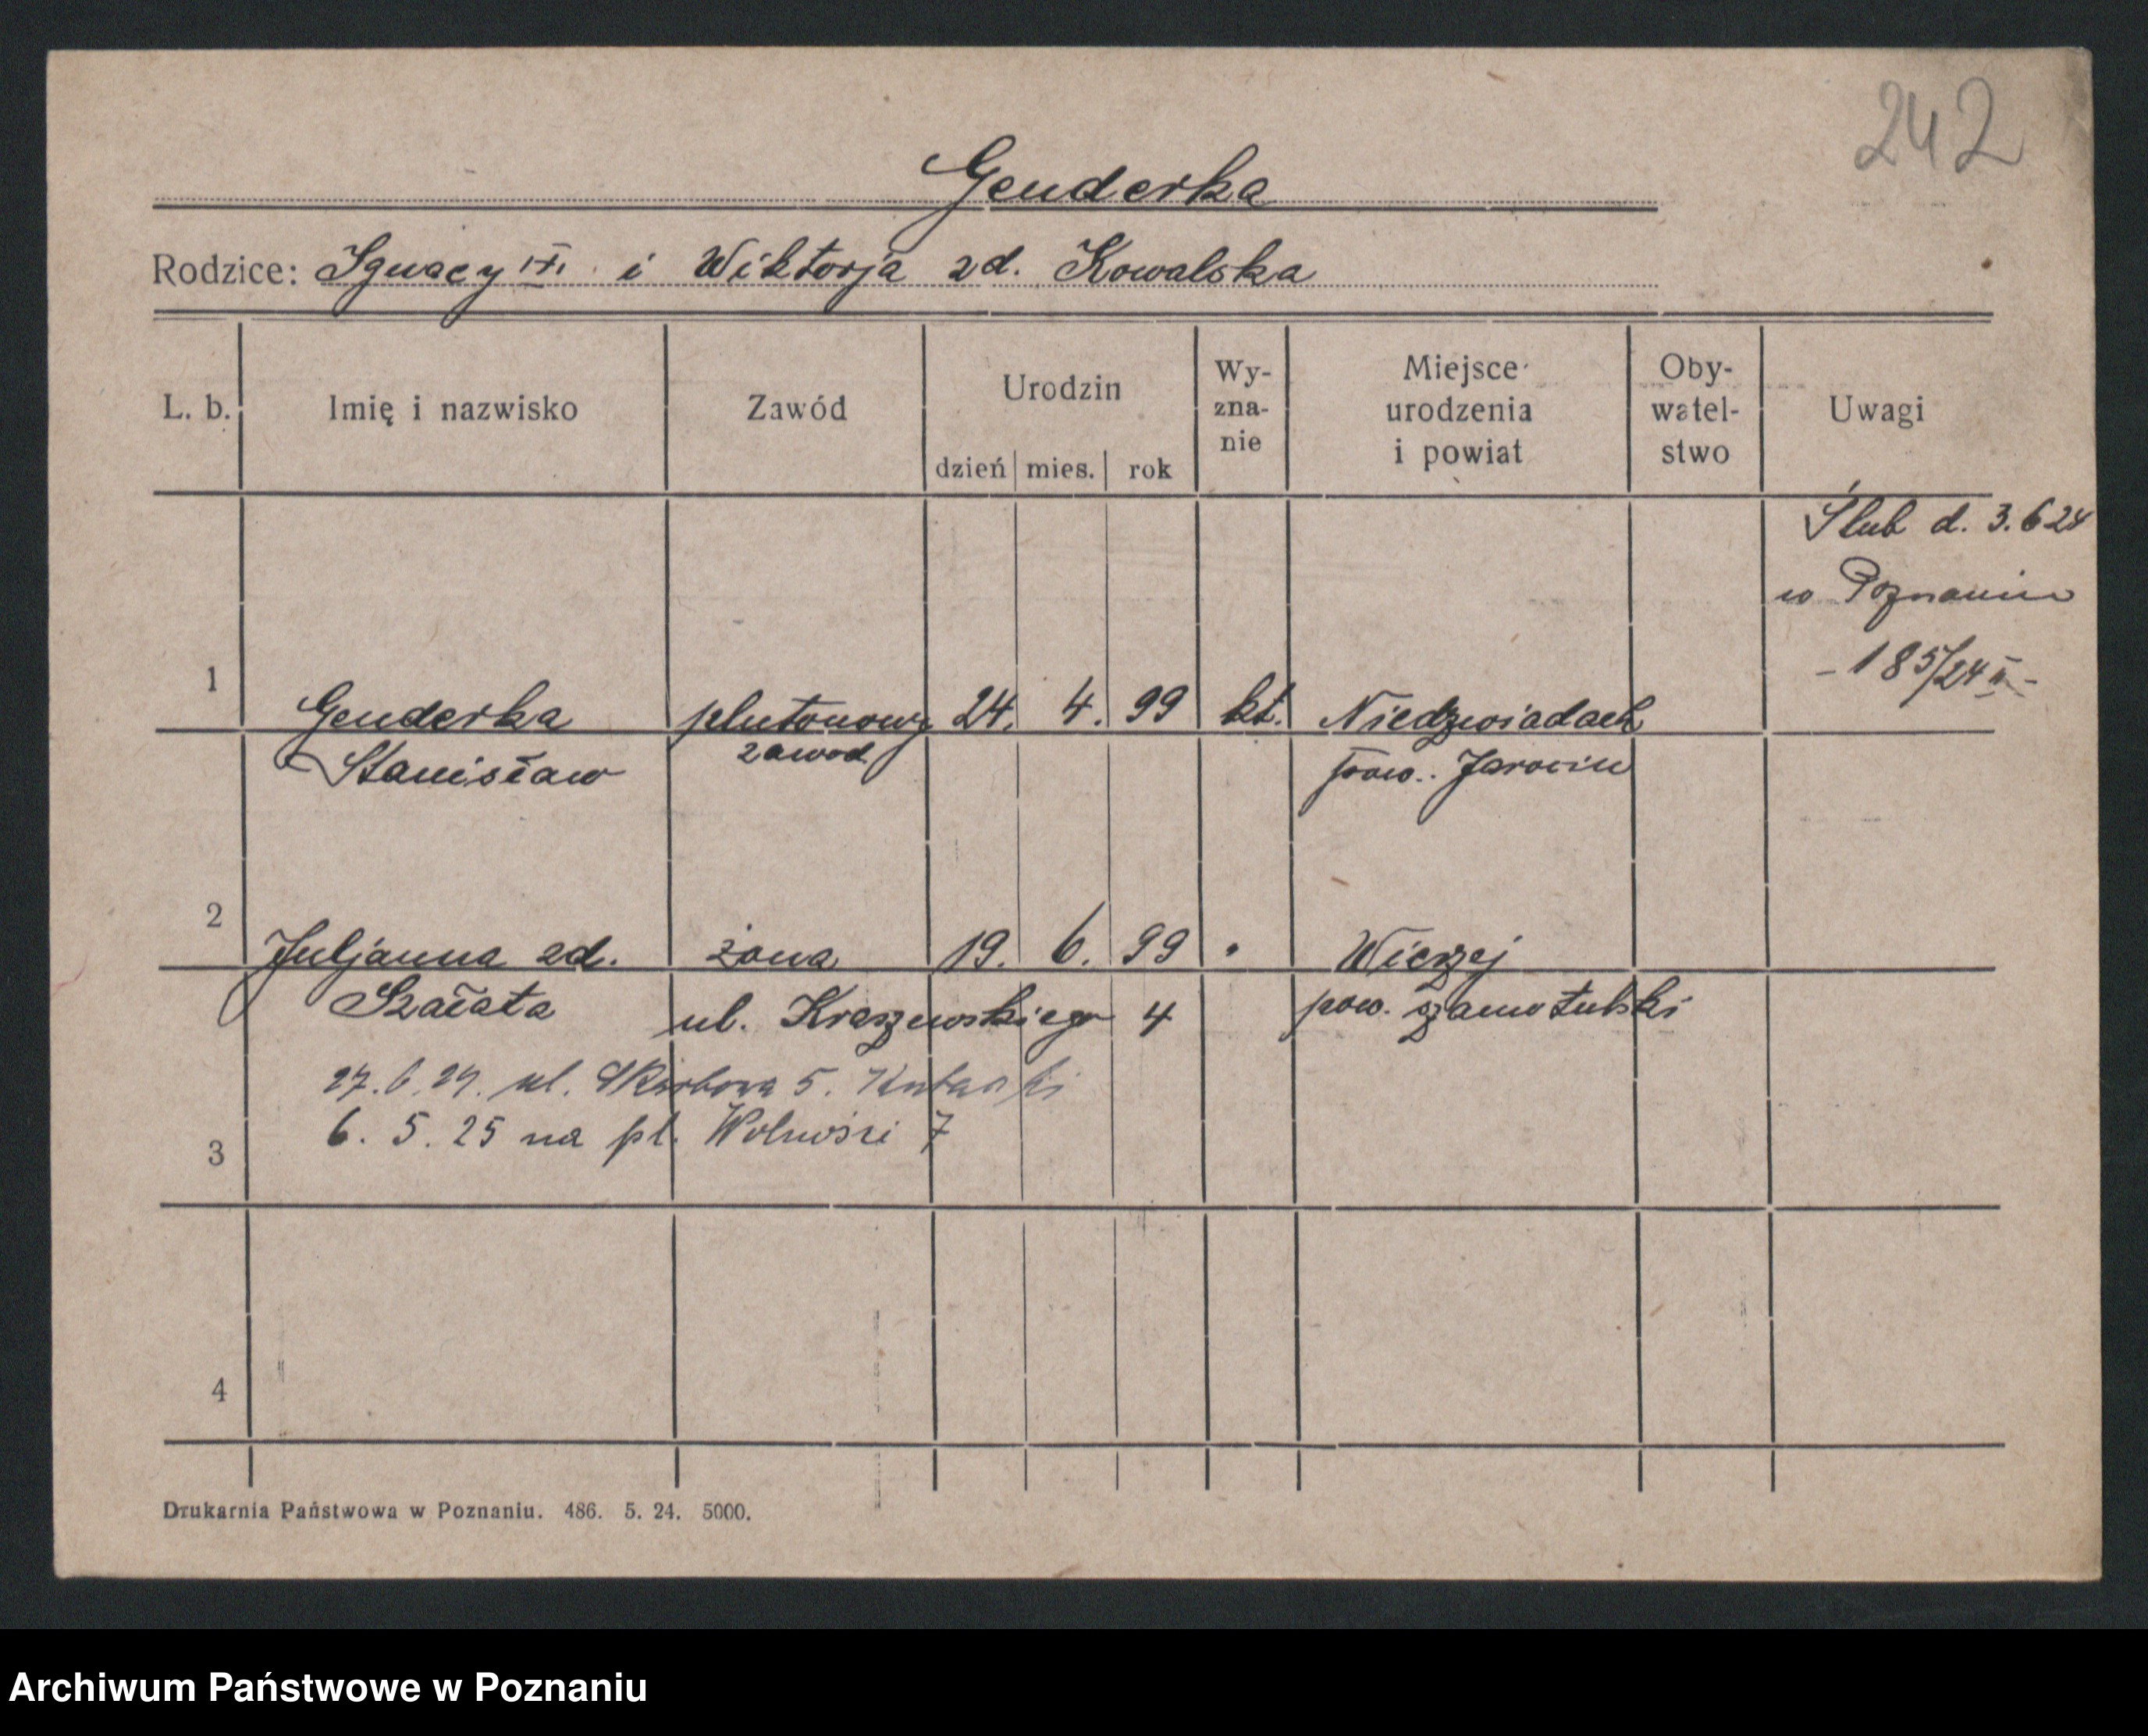 242
Genderka
Rodzice: Ignacy i Wiktorja zd. Kowalska
L. b. Imię i nazwisko Zawód Urodzin dzień mies. rok Wy-zna-nie Miejsce urodzenia i powiat Oby-watel-stwo Uwagi
Ślub d. 3.6 24
w Poznaniu
- 185/24 II -
1 Genderka plutonowy 24. 4. 99 kt. Niedzwiadach
Stanisław zawod. pow. Jarocin
2 Juljanna zd. żona 19. 6. 99 " Wierzej
Szałata ul. Kraszewskiego 4 pow. szamotulski
27. 6. 24. ul. Skarbowa 5.
3 6. 5. 25 na pl. Wolności 7
4
Drukarnia Państwowa w Poznaniu. 486. 5. 24. 5000.
Archiwum Państwowe w Poznaniu